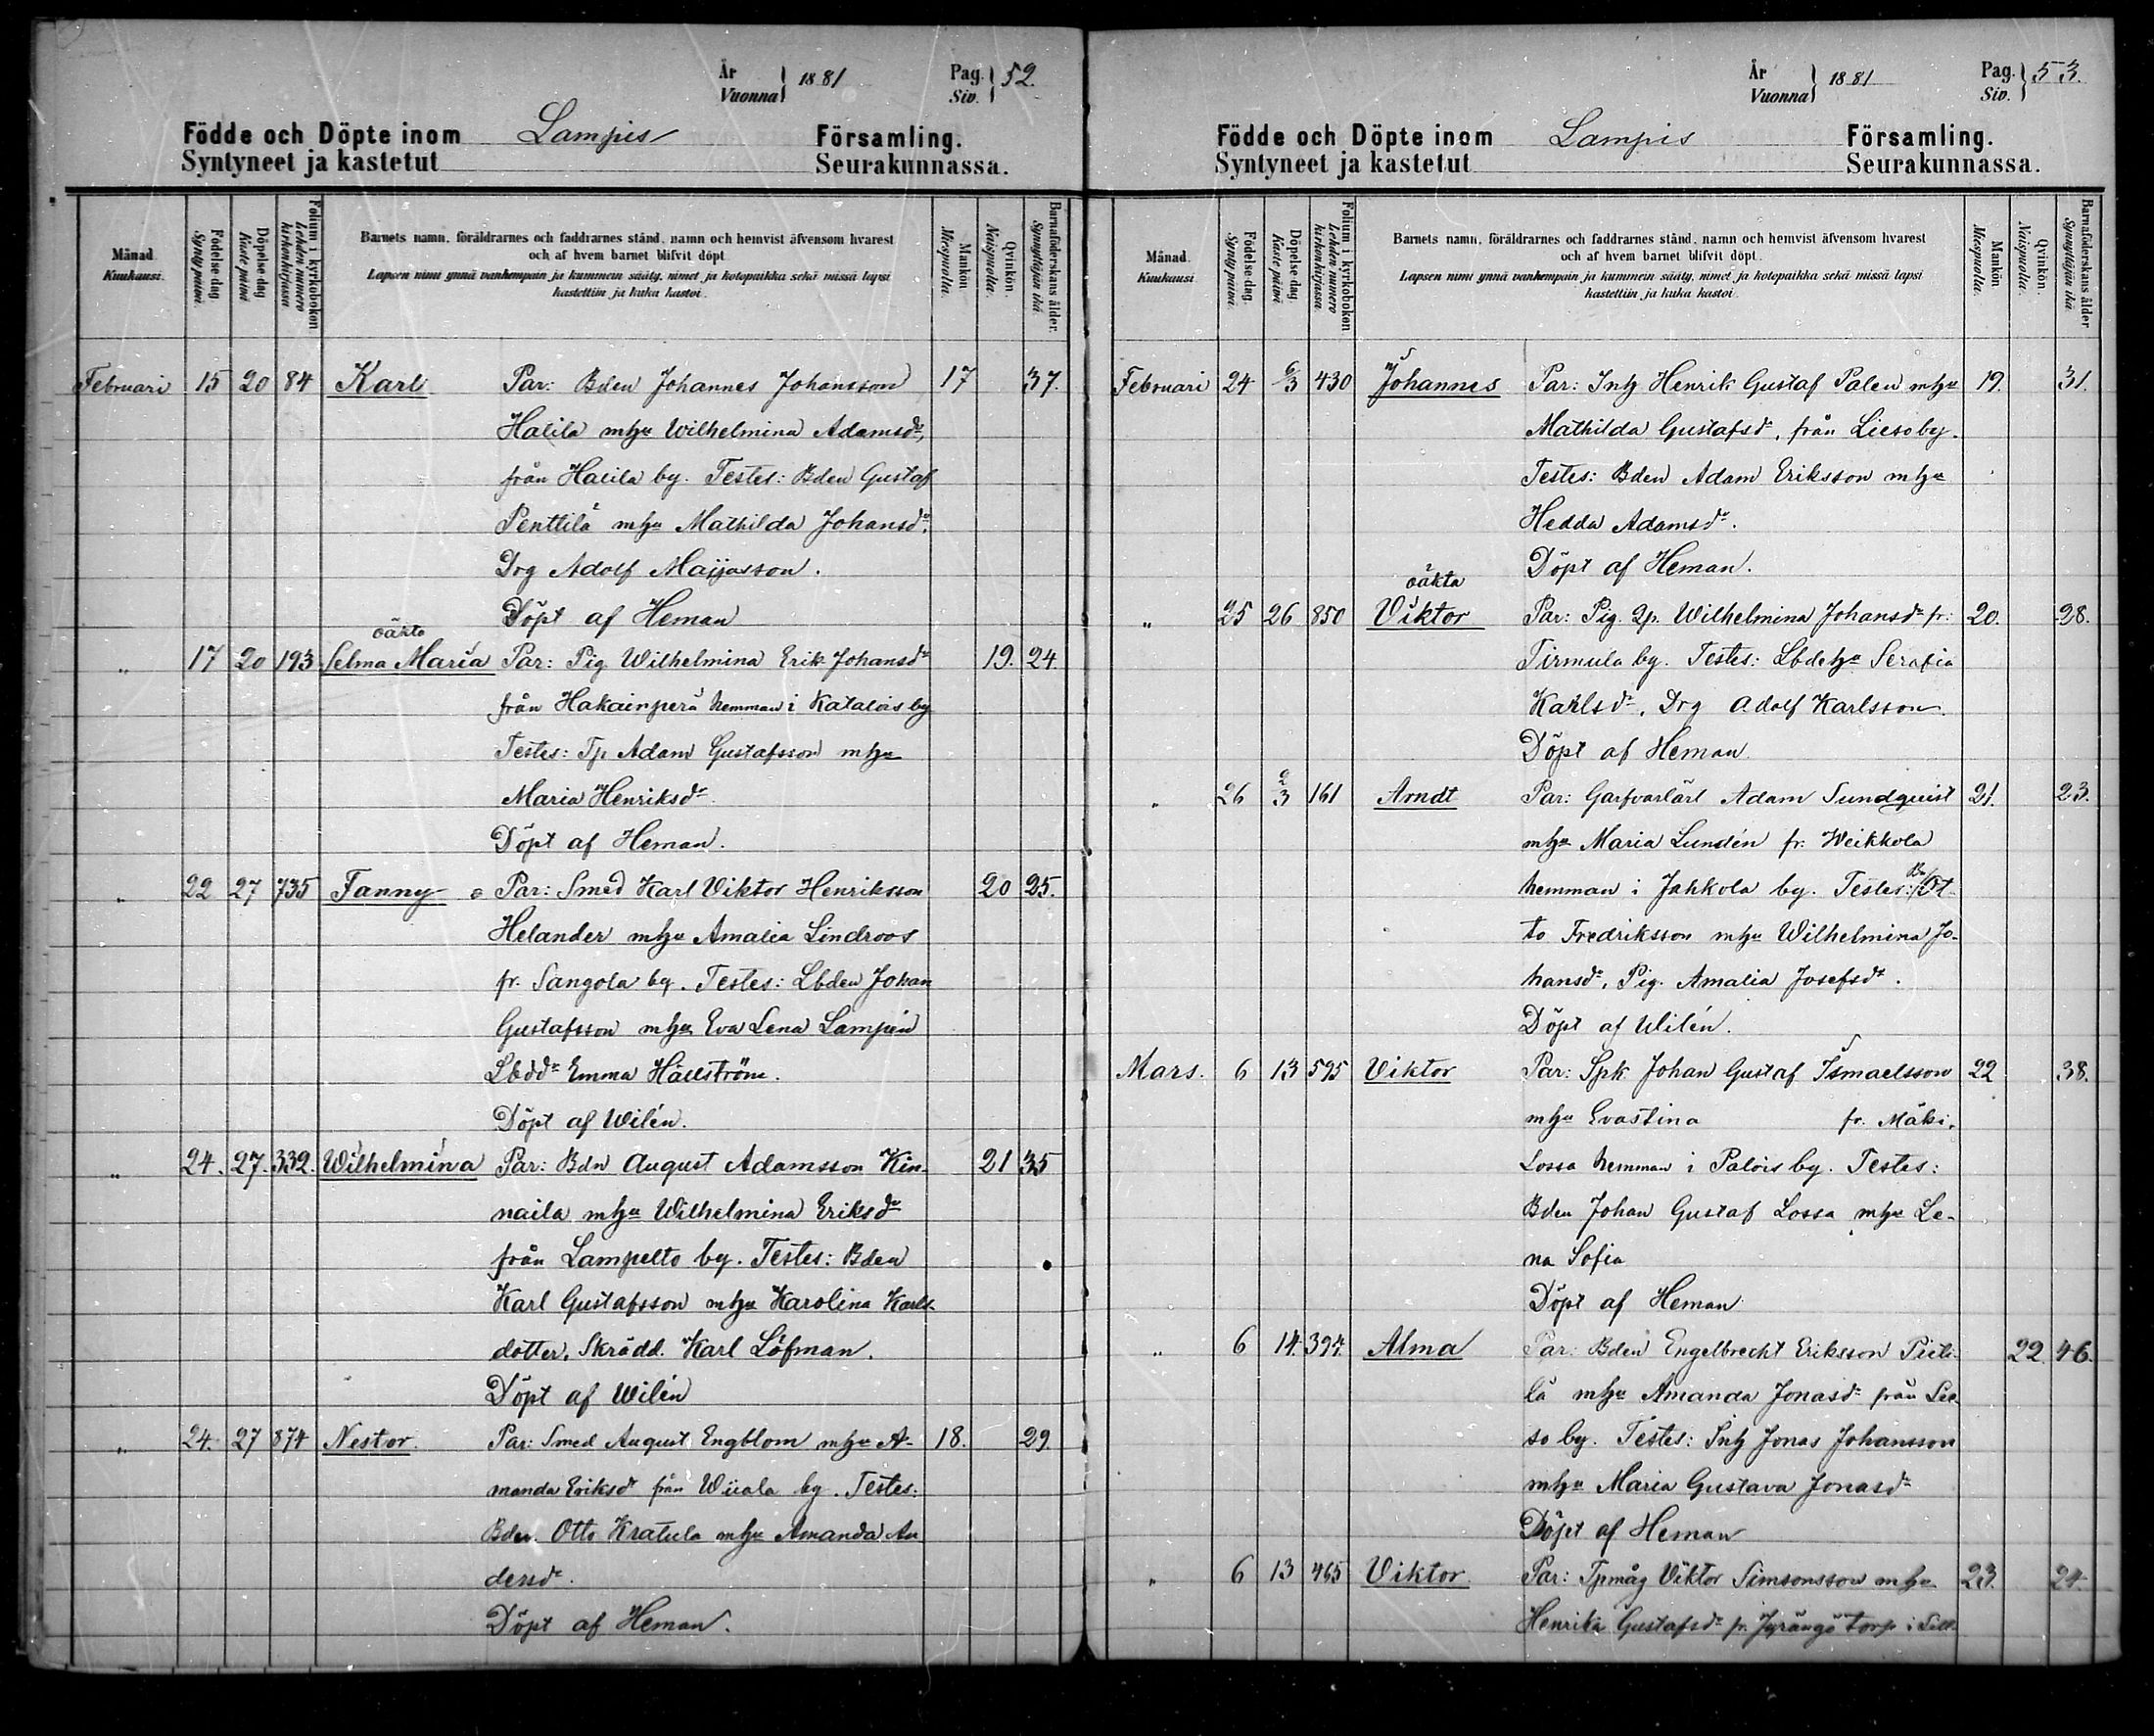 År
Vuonna } 1881
Pag.
Siv. } 52.
Födde och Döpte inom Lampis Församling.
Syntyneet ja kastetut Seurakunnassa.
Månad
Kuukausi.
Födelse dag
Synty päivä.
Döpelse dag
Kaste päivä
Folium i kyrkoboken
Lehden numero
kirkonkirjassa
Barnets namn, föräldrarnes och faddrarnes stånd, namn och hemvist äfvensom hvarest
och af hvem barnet blifvit döpt.
Lapsen nimi ynnä vanhempain ja kummein sääty, nimet ja kotopaikka sekä missä lapsi
kastettiin ja kuka kastoi.
Mankön
Miespuolia.
Qvinkön.
Naispuolia.
Barnaföderskans ålder.
Synnyttäjän ikä.
Februari 15 20 84 Karl Par: Bden Johannes Johansson 17 37.
Halila mhu Wilhelmina Adamsdr,
från Halila by. Testes: Bden Gustaf
Penttilä mhu Mathilda Johansdr.
Drg Adolf Maijasson.
Döpt af Heman
oäkta
" 17 20 193 Selma Maria Par: Pig Wilhelmina Erik Johansdr 19. 24.
från Hakainperä hemman i Katalois by
Testes: Tp Adam Gustafsson mhu
Maria Henriksdr
Döpt af Heman.
" 22 27 735 Fanny Par: Smed Karl Viktor Henriksson 20 25.
Helander mhu Amalia Lindroos
fr. Sangola by. Testes: Lbden Johan
Gustafsson mhu Eva Lena Lampén
Lbddr Emma Hällström.
Döpt af Wilén.
" 24. 27. 332. Wilhelmina Par: Bdn August Adamsson Kin- 21 35
naila mhu Wilhelmina Eriksdr
från Lampelto by. Testes: Bden
Karl Gustafsson mhu Karolina Karls
dotter, Skrädd. Karl Löfman.
Döpt af Wilén
" 24. 27 874 Nestor. Par: Smed August Engblom mhu A- 18. 29
manda Eriksdr från Wiiala by. Testes:
Bden. Otto Kratula mhu Amanda An
dersdr.
Döpt af Heman.
År
Vuonna } 1881
Pag.
Siv. } 53.
Födde och Döpte inom Lampis Församling.
Syntyneet ja kastetut Seurakunnassa.
Månad
Kuukausi
Födelse dag.
Synty päivä.
Döpelse dag
Kaste päivä.
Folium i kyrkoboken
Lehden numero
kirkonkirjassa.
Barnets namn, föräldrarnes och faddrarnes stånd, namn och hemvist äfvensom hvarest
och af hvem barnet blifvit döpt.
Lapsen nimi ynnä vanhempain ja kummein sääty, nimet ja kotopaikka sekä missä lapsi
kastettiin ja kuka kastoi.
Mankön
Miespuolia.
Qvinkön.
Naispuolia.
Barnaföderskans ålder
Synnyttäjän ikä
Februari 24 6/3 430 Johannes Par: Inh Henrik Gustaf Palen mhu 19. 31.
Mathilda Gustafsdr, från Lieso by.
Testes: Bden Adam Eriksson mhu
Hedda Adamsdr.
Döpt af Heman.
oäkta
" 25 26 850 Viktor Par: Pig. Qp. Wilhelmina Johansdr fr: 20. 28.
Tirmula by. Testes: Lbdehu Serafia
Karlsdr, Drg Adolf Karlsson.
Döpt af Heman
" 26 2/3 161 Arndt Par: Garfvarlärl Adam Sundquist 21. 23.
mhu Maria Lundén fr. Weikkola
hemman i Jahkola by. Testes: Bd Ot-
to Fredriksson mhu Wilhelmina Jo-
hansdr, Pig. Amalia Josefsdr.
Döpt af Wilén.
Mars. 6 13 595 Viktor Par: Spk Johan Gustaf Ismaelsson 22 38.
mhu Evastina fr. Mäki-
Lossa hemman i Palois by. Testes:
Bden Johan Gustaf Lossa mhu Le-
na Sofia
Döpt af Heman
" 6 14. 394. Alma Par: Bden Engelbrecht Eriksson Pieti- 22 46.
lä mhu Amanda Jonasdr från Lie
so by. Testes: Inh Jonas Johansson
mhu Maria Gustava Jonasdr
Döpt af Heman
" 6 13 465 Viktor. Par: Tpmåg Viktor Simsonsson mhu 23. 24.
Henrika Gustafsdr fr. Jyrängö torp i Sill-